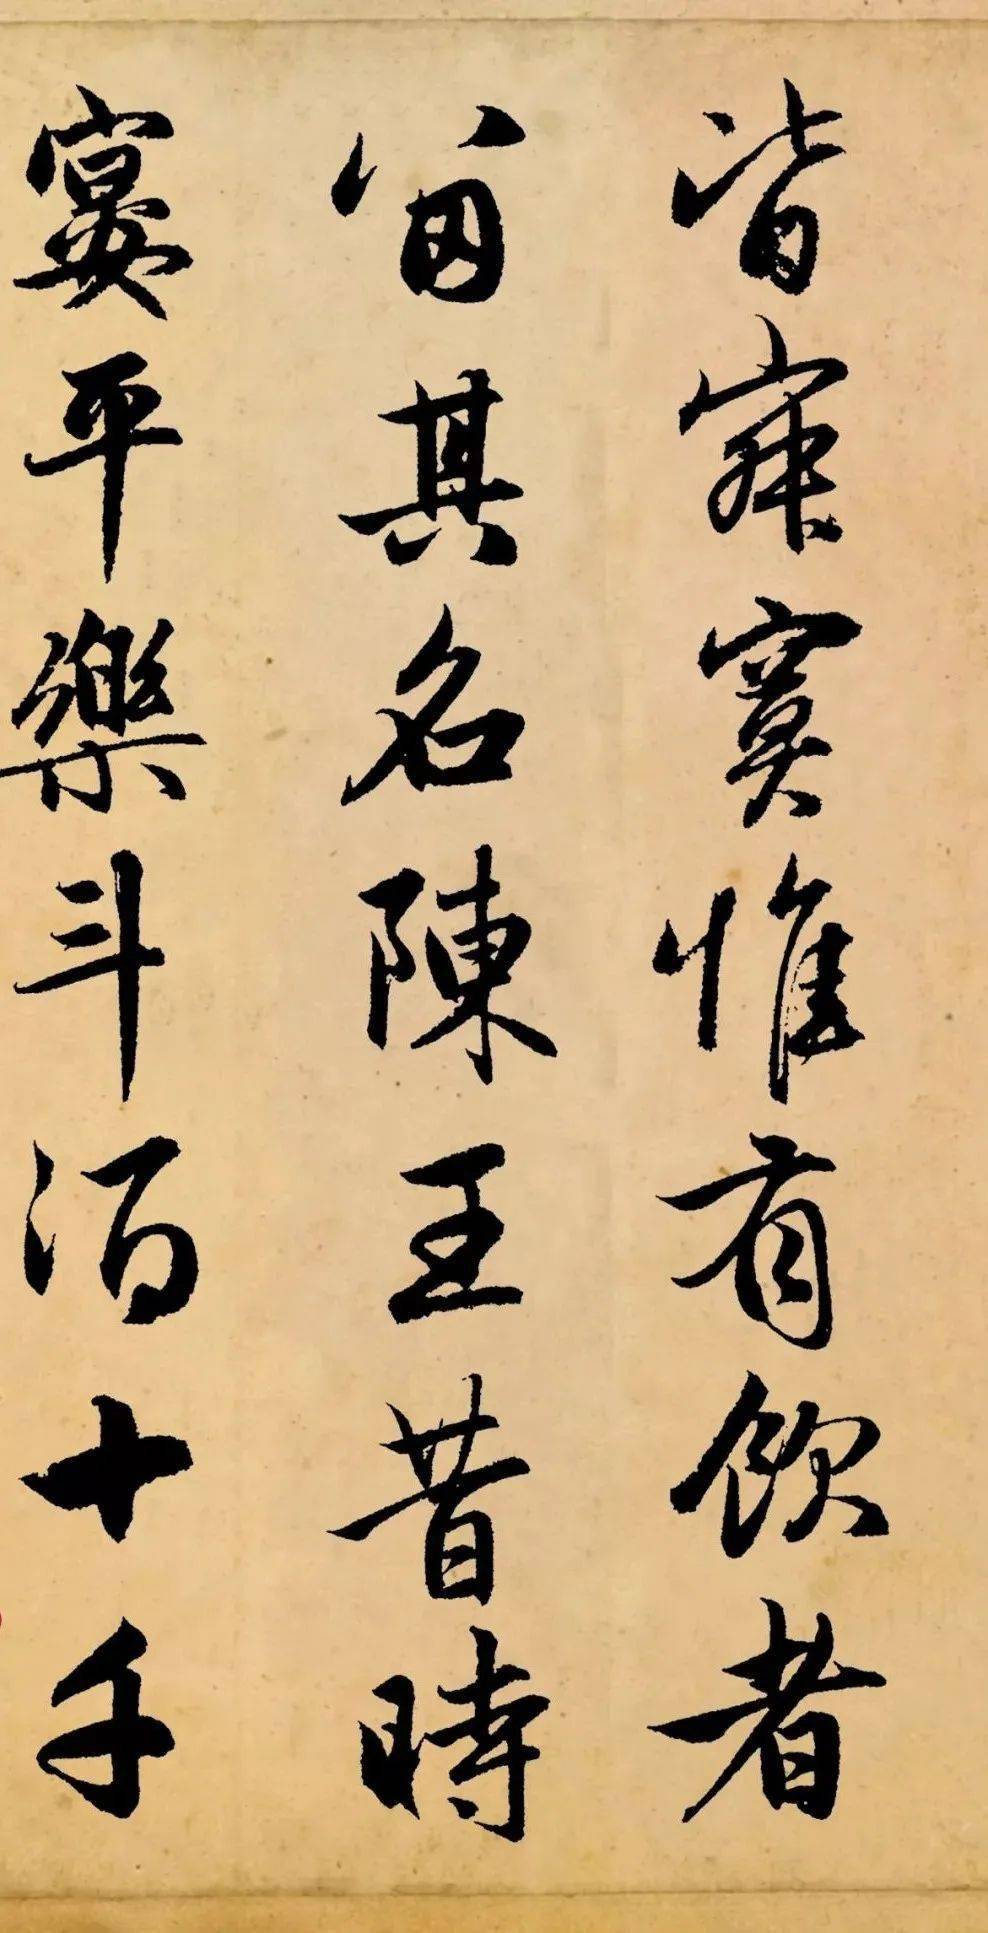 皆寂寞惟有飲者
留其名陳王昔時
宴平樂斗酒十千